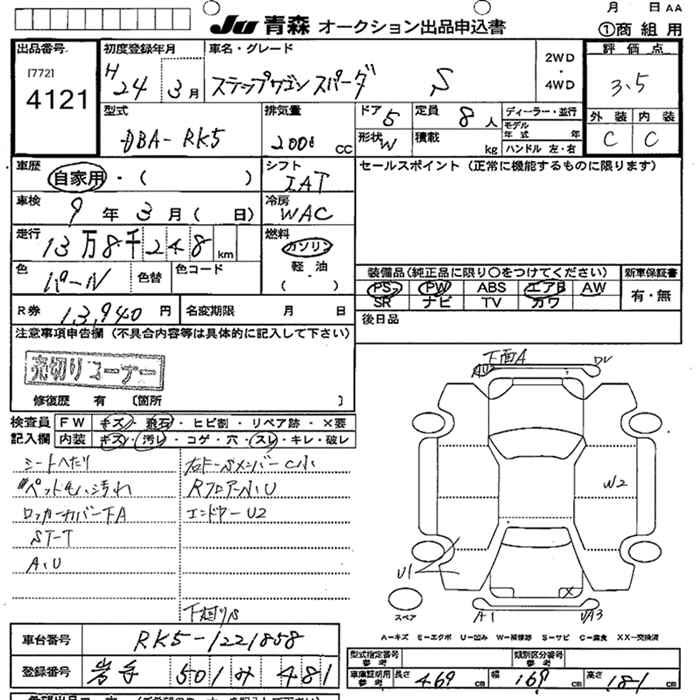 月 日 AA
JU 青森 オークション出品申込書 ①商組用
出品番号
[772]
4121
初度登録年月
H24 3月
車名・グレード
ステップワゴン スパーダ S
2WD
・
4WD
評価点
3.5
外装 内装
C C
型式
DBA-RK5
排気量
2000 cc
ドア 5
定員 8人
形状 W
積載 kg
ディーラー・並行
モデル年式 年
ハンドル 左・右
車歴
自家用・( )
シフト
IAT
車検
9年3月( 日)
冷房
WAC
走行
13万8千248km
燃料
ガソリン
軽・油
( )
色
パール
色替
色コード
R券 13,940円
名変期限 月 日
セールスポイント(正常に機能するものに限ります)
装備品(純正品に限り〇をつけてください)
PS PW ABS エアB AW
SR ナビ TV カワ
新車保証書
有・無
後日品
注意事項申告欄(不具合内容等は具体的に記入して下さい)
売切りコーナー
修復歴 有 〔箇所 〕
検査員記入欄
FW キズ・飛石・ヒビ割・リペア跡・×要
内装 キズ・汚レ・コゲ・穴・スレ・キレ・破レ
シートヘタリ
ペットもハ汚れ
ロッカーカバー下A
ST-T
A、U
右ドーSメンバーC小
Rフロアー小U
エンドヤーU2
下廻りS
下面A
W2
U1
A1
UA3
スペア
A-キズ E-エクボ U-凹み W-補修跡 S-サビ C-腐食 XX-交換済
車台番号 RK5-1221858
登録番号 岩手 501 み 481
型式指定番号 参考
類別区分番号 参考
車庫証明用 参考
長さ 469cm
幅 169cm
高さ 181cm